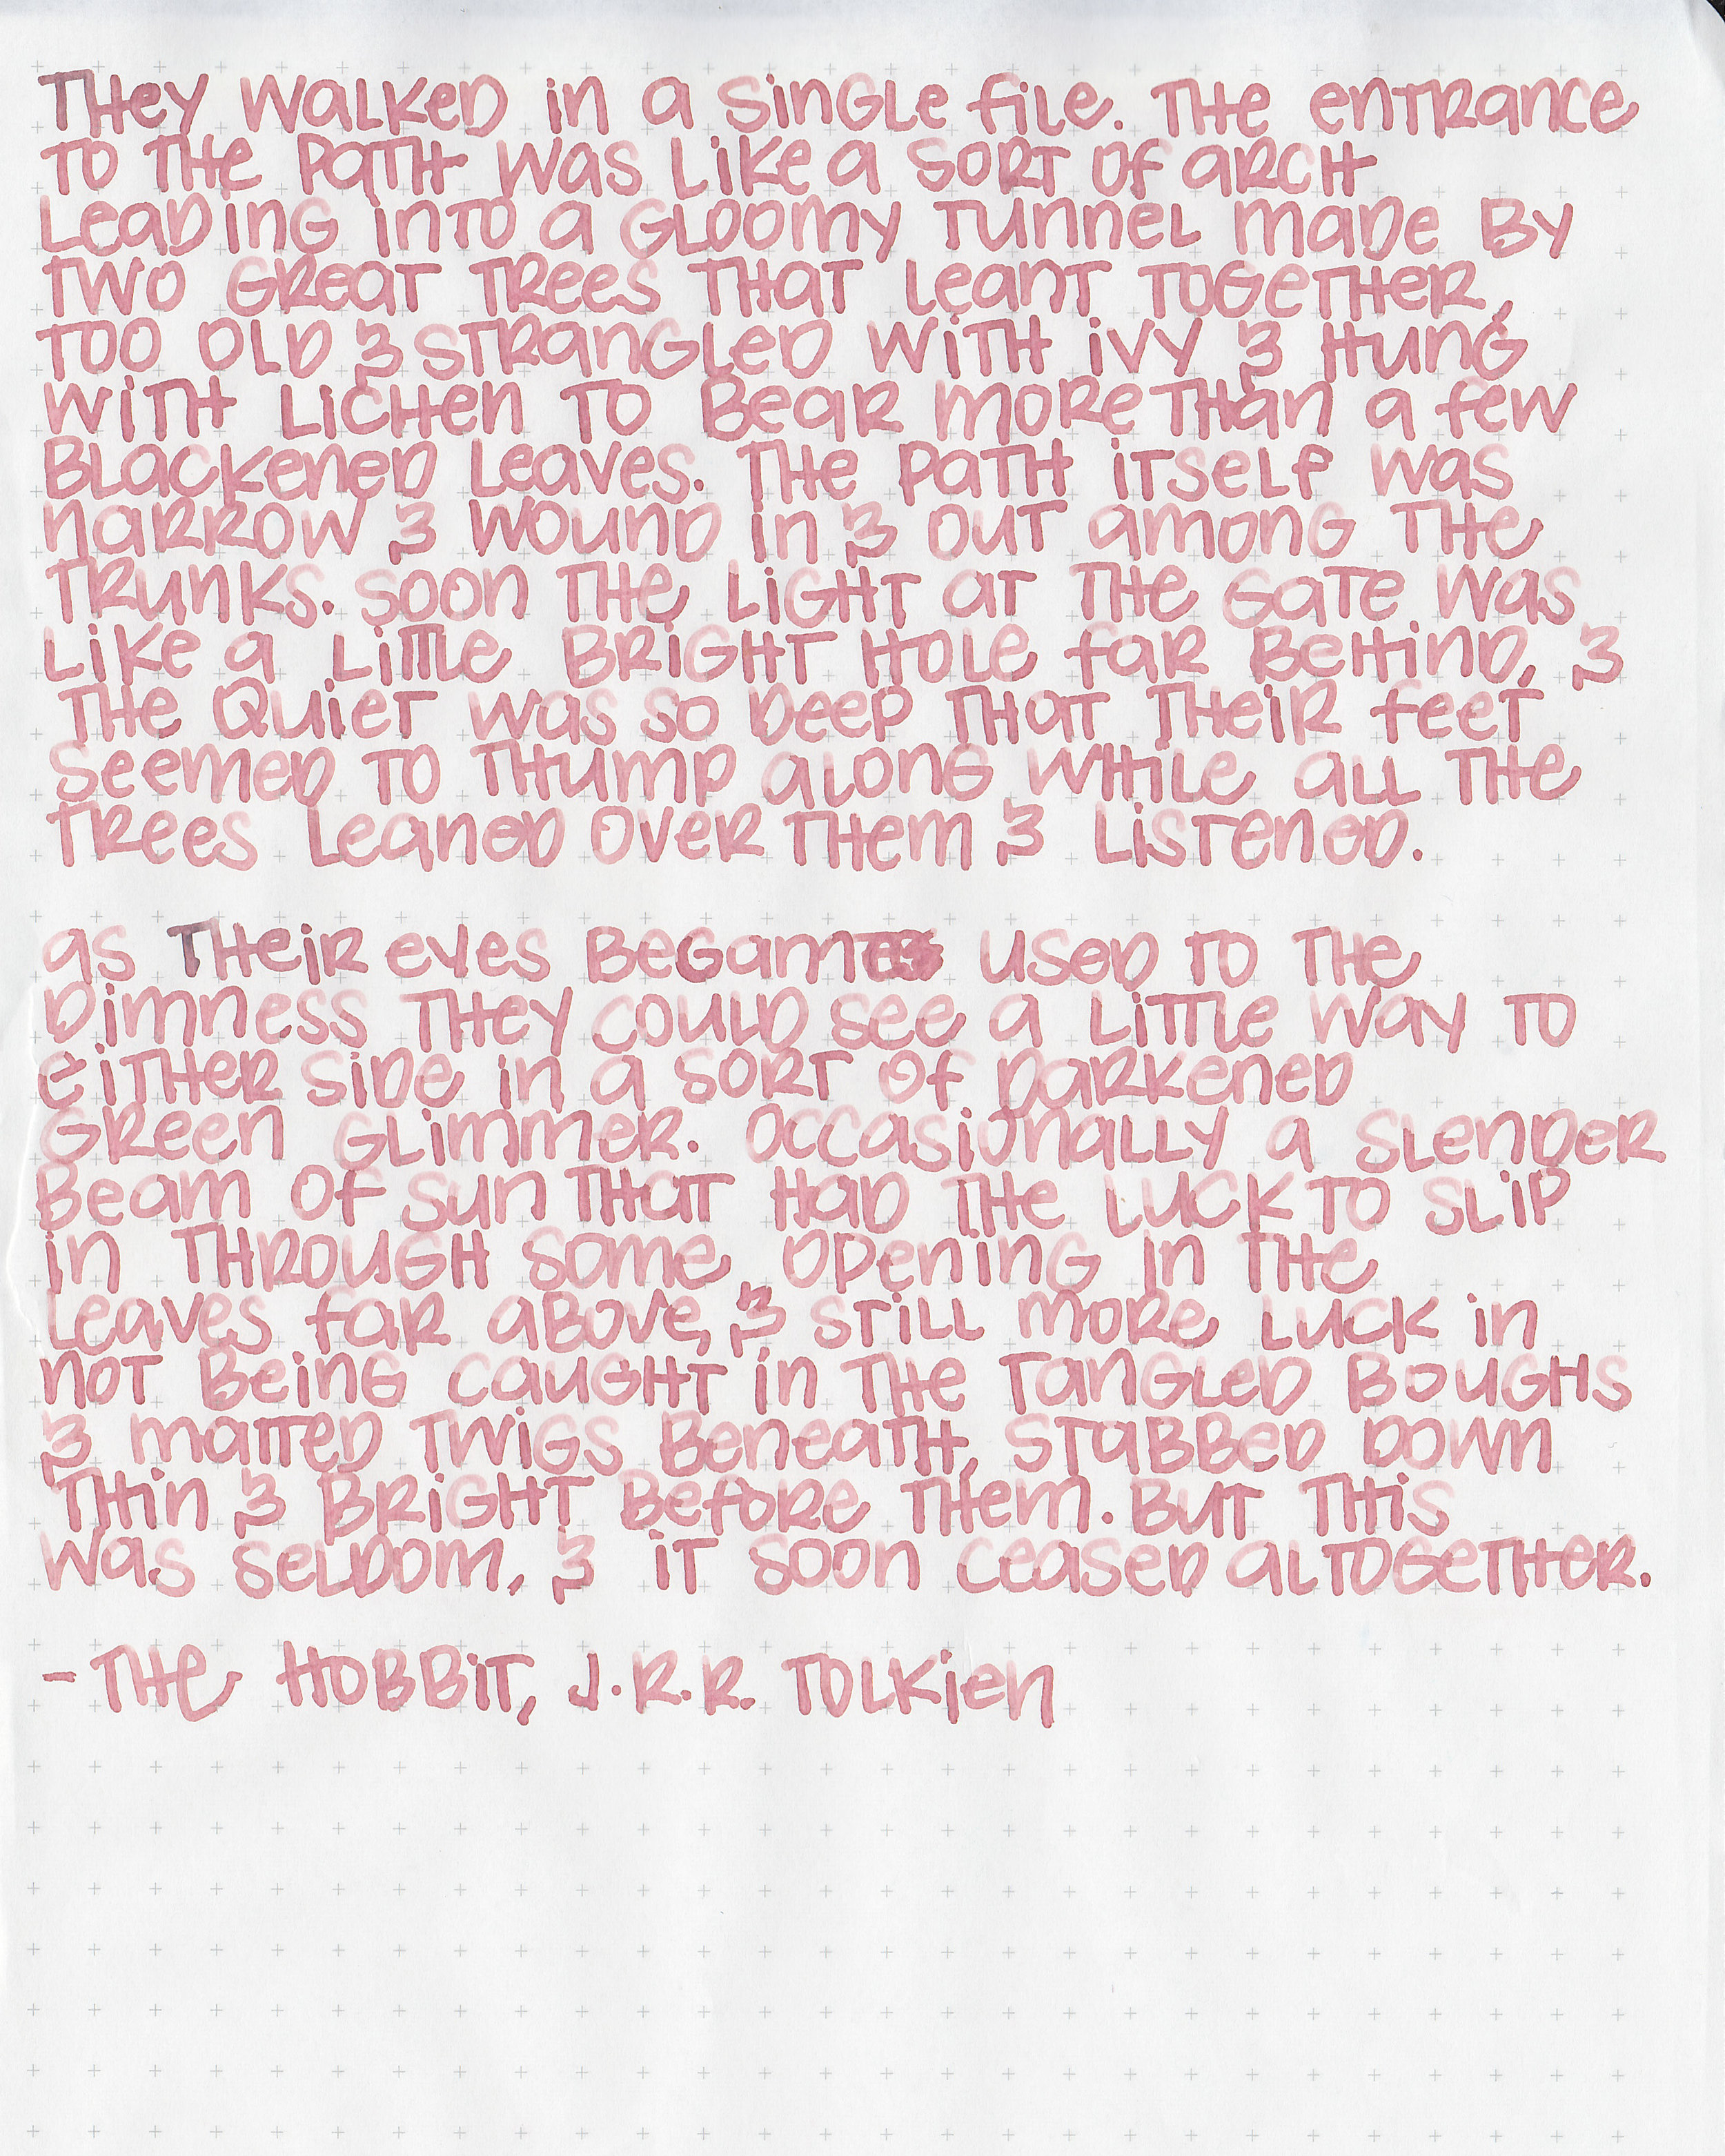 They walked in a single file. The entrance
to the path was like a sort of arch
leading into a gloomy tunnel made by
two great trees that leant together,
too old & strangled with ivy & hung
with lichen to bear more than a few
blackened leaves. The path itself was
narrow & wound in & out among the
trunks. Soon the light at the gate was
like a little bright hole far behind, &
the quiet was so deep that their feet
seemed to thump along while all the
trees leaned over them & listened.
As their eyes began used to the
dimness they could see a little way to
either side in a sort of darkened
green glimmer. Occasionally a slender
beam of sun that had the luck to slip
in through some opening in the
leaves far above, & still more luck in
not being caught in the tangled boughs
& matted twigs beneath, stabbed down
thin & bright before them. But this
was seldom, & it soon ceased altogether.
- The Hobbit, J.R.R. Tolkien